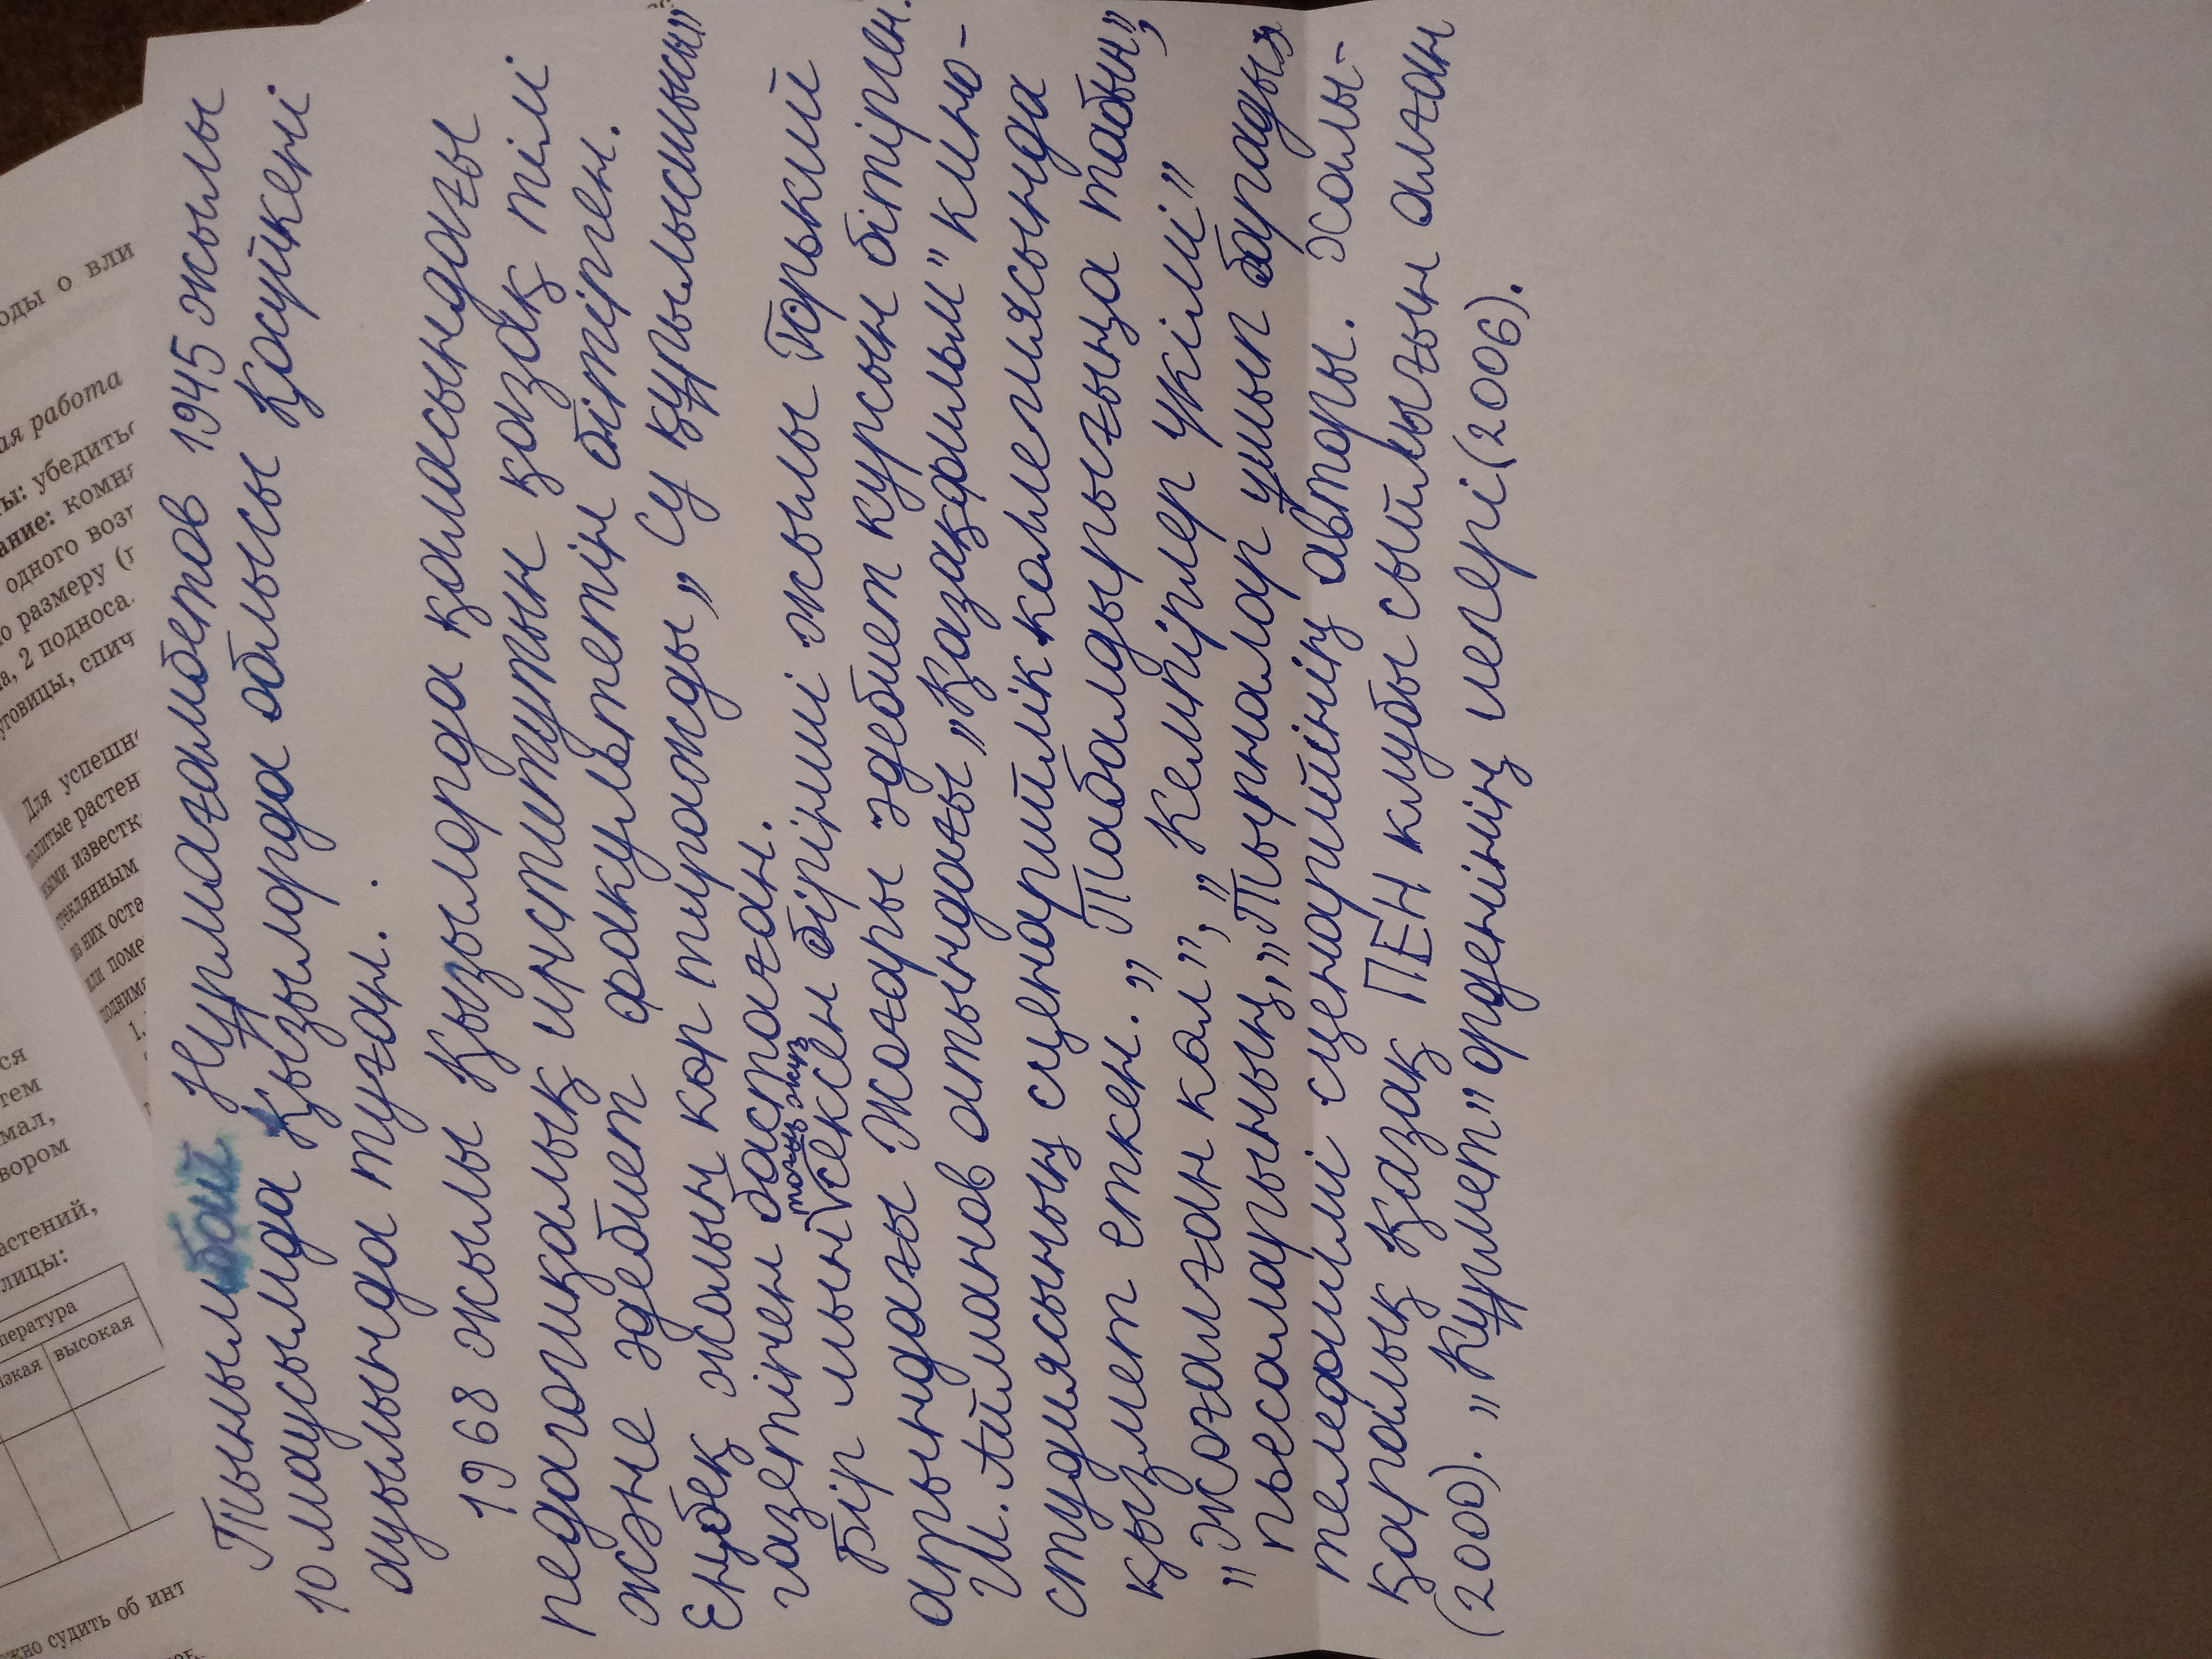 Тынымбай Нұрмағамбетов 1945 жылы
10 маусымда Қызылорда облысы Қосүйкені
ауылында туған.
1968 жылы Қызылорда қаласындағы
педагогикалық институтын қазақ тілі
және әдебиет факультетін бітірген.
Еңбек жолын кор тиражды „Су құрылысшысы"
газетінен бастаған.
Бір мың тоғыз жүз сексен бірінші жылы Горький
атындағы Жоғары әдебиет курсын бітірген.
Ш. Айманов атындағы „Қазақфильм" кино-
студиясының сценарийлік коллегиясында
қызмет еткен. „Табалдырығыңа табын",
„Жоғалған кол", „Кемпірлер үкімі"
пьесаларының, „Тырналар ұшып барады"
телефильмі сценарийінің авторы. Халы-
қаралық Қазақ ПЕН клубы сыйлығын алған
(2000). „Құрмет" орденінің иегері (2006).
оды о вли
ая работа
ты: убедитьс
ание: комна
одного возр
о размеру (п
а, 2 подноса
уговицы, спич
Для успешно
политые растен
ными известк
стеклянным
из них оста
или поме
поднима
1.
ся
тем
мал,
вором
астений,
лицы:
пература
изкая высокая
жно судить об инт